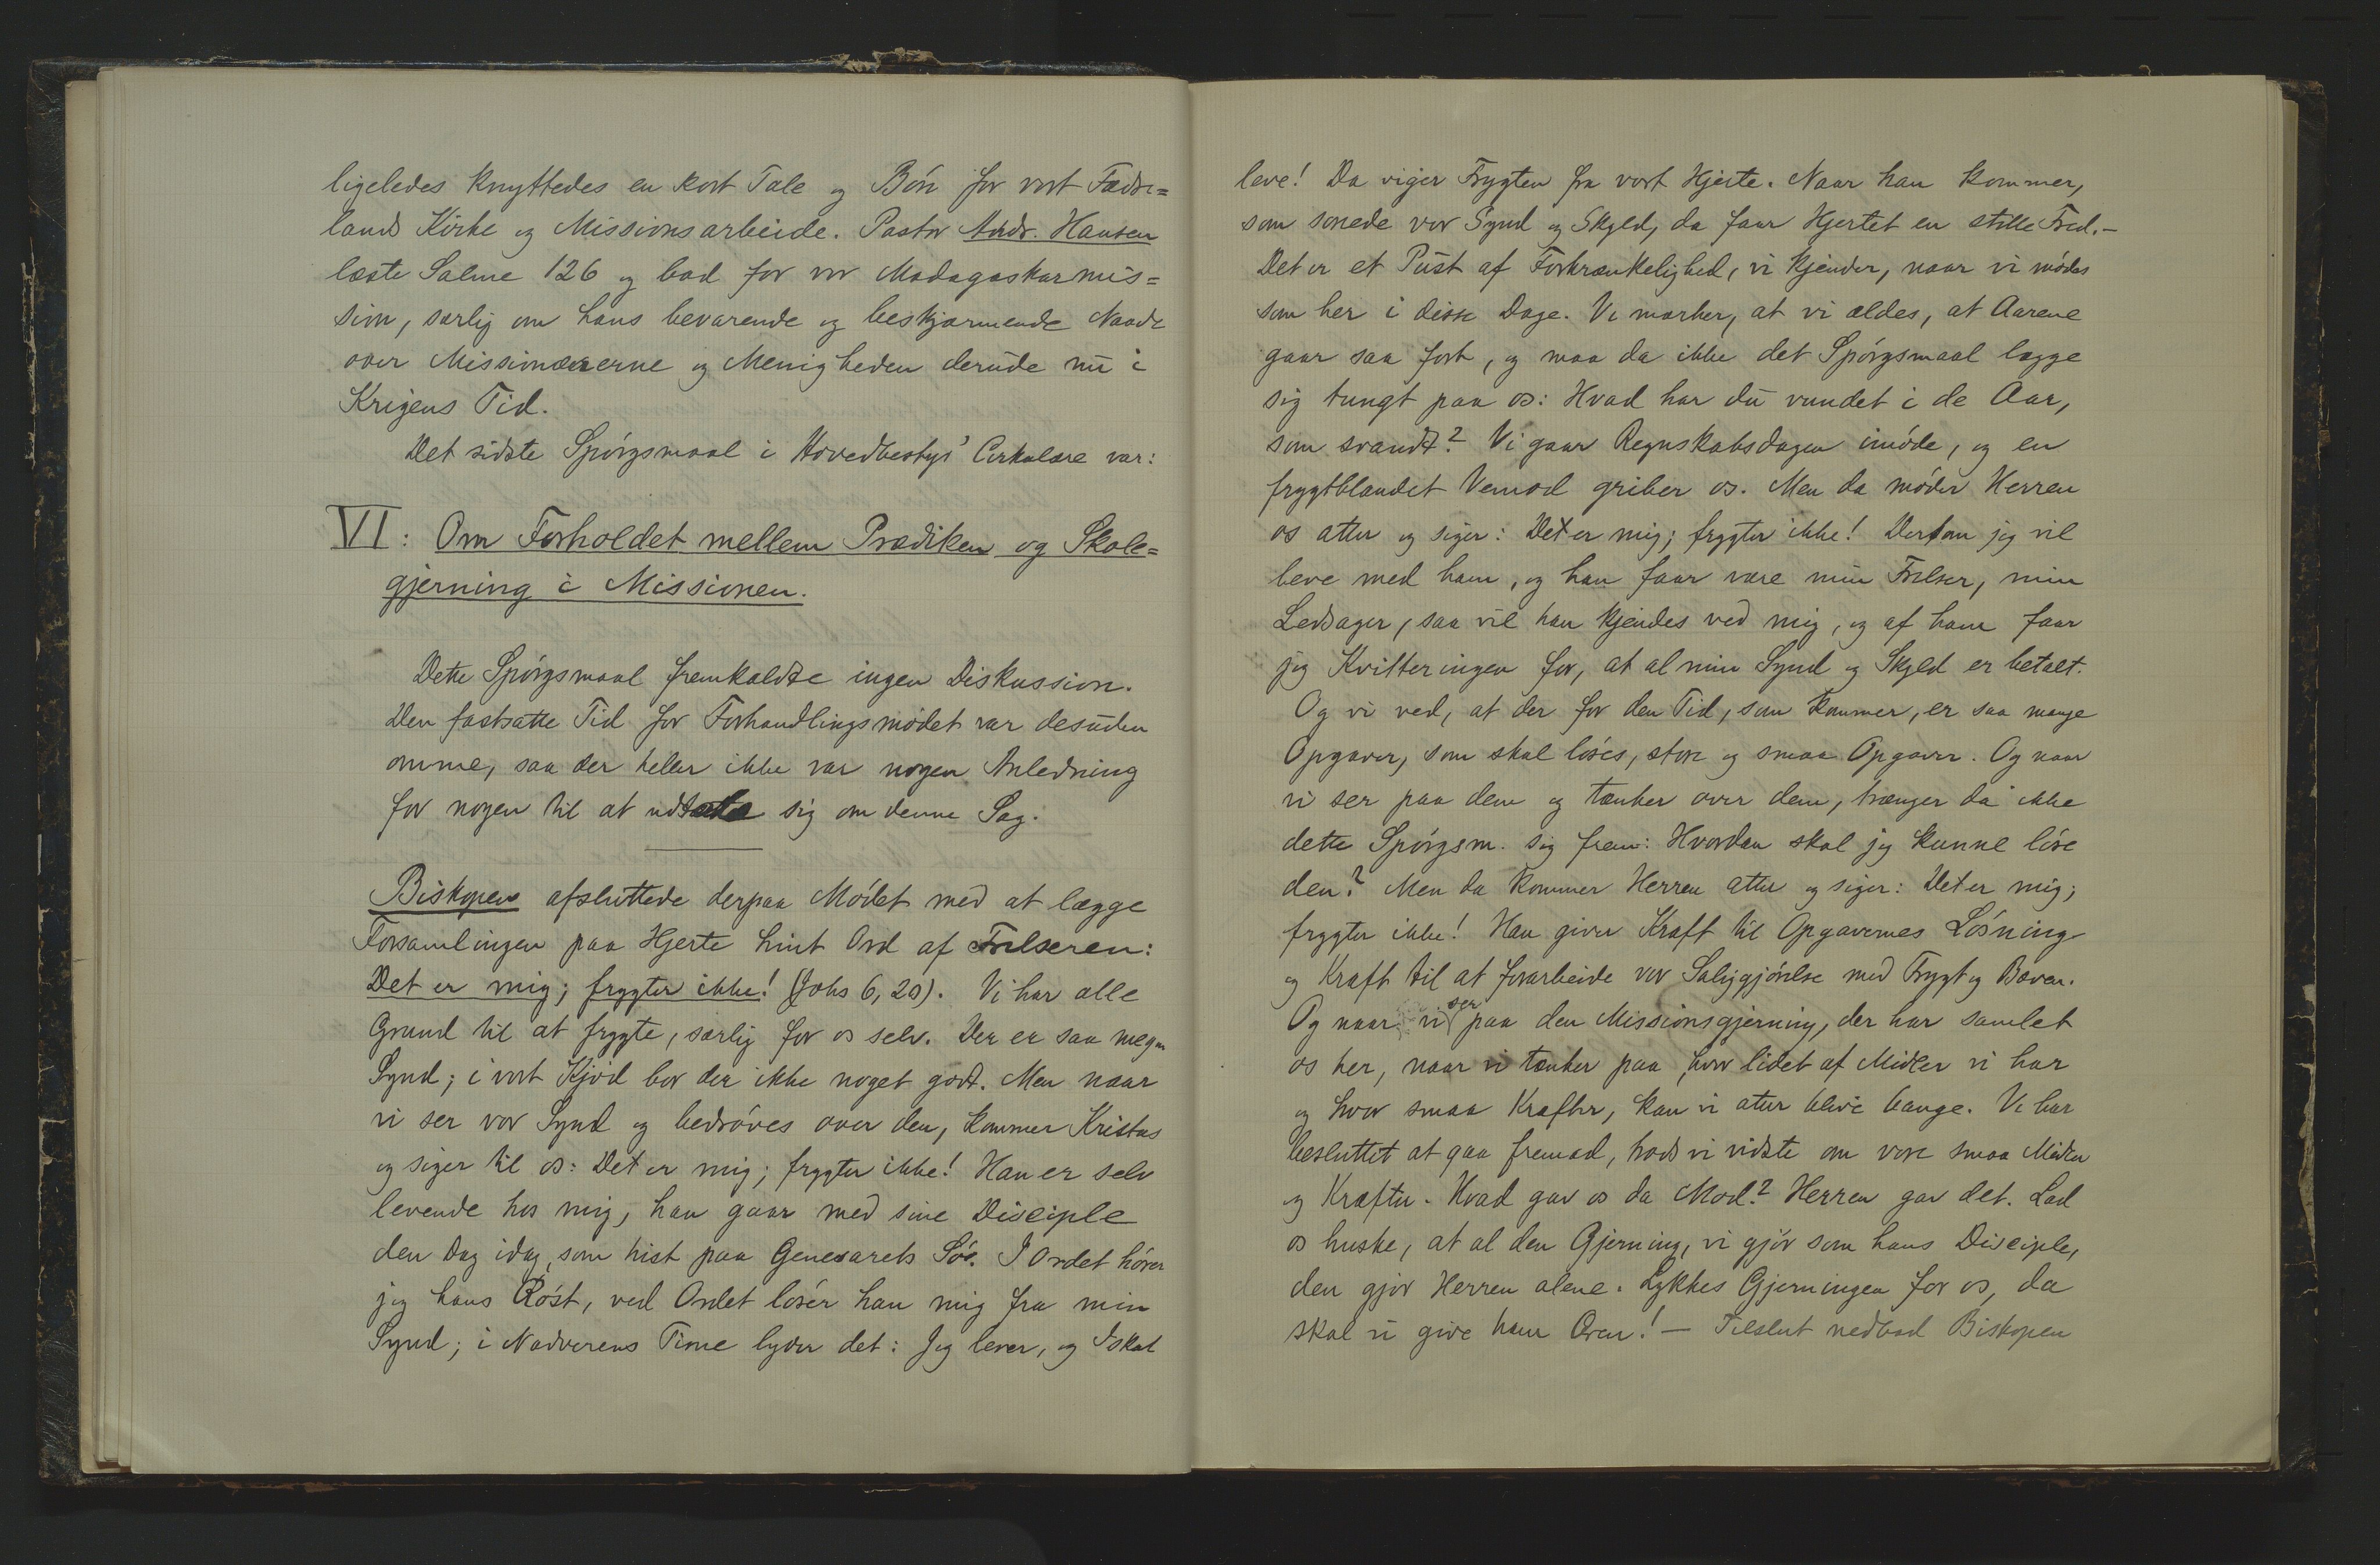 ligeledes knyttedes en kort Tale og Bön for vort Fædre=
lands Kirke og Missionsarbeide. Pastor Andr. Hansen
læste Salme 126 og bad for vor Madagaskarmis=
sion, særlig om Hans bevarende og beskjærmende Naade
over Missionærerne og Menigheden derude nu i
Krigens Tid.
Det sidste Spörgsmaal i Hovedbestys' Cirkulære var:
VI: Om Forholdet mellem Prædiken og Skole=
gjerning i Missionen.
Dette Spörgsmaal fremkaldte ingen Diskussion.
Den fastsatte Tid for Forhandlingsmödet var desuden
omme, saa der heller ikke var nogen Anledning
for nogen til at udtale sig om denne Sag.
Biskopen afsluttede derpaa Mödet med at lægge
Forsamlingen paa Hjerte hint Ord af Frelseren:
Det er mig; frygter ikke! (Johs 6, 20). Vi har alle
Grund til at frygte, særlig for os selv. Der er saa megen
Synd; i vort Kjöd bor der ikke noget godt. Men naar
vi ser vor Synd og bedröves over den, kommer Kristus
og siger til os: Det er mig; frygter ikke! Han er selv
levende hos mig, han gaar med sine Disciple
den Dag idag, som hist paa Genesarets Sö. I Ordet hörer
jeg hans Röst, ved Ordet löser han mig fra min
Synd; i Nadverens Time lyder det: Jeg lever, og I skal
leve! Da viger Frygten fra vort Hjerte. Naar han kommer,
som sonede vor Synd og Skyld, da faar Hjertet en stille Fred. -
Det er et Pust af Forkrænkelighed, vi kjender, naar vi mödes
som her i disse Dage. Vi mærker, at vi ældes, at Aarene
gaar saa fort, og maa da ikke det Spörgsmaal lægge
sig tungt paa os: Hvad har du vundet i de Aar,
som svandt? Vi gaar Regnskabsdagen imöde, og en
frygtblandet Vemod griber os. Men da möder Herren
os atter og siger: Det er mig; frygter ikke! Dersom jeg vil
leve med ham, og han faar være min Frelser, min
Ledsager, saa vil han kjendes ved mig, og af ham faar
jeg Kvitteringen for, at al min Synd og Skyld er betalt.
Og vi ved, at der for den Tid, som kommer, er saa mange
Opgaver, som skal löses, store og smaa Opgaver. Og naar
vi ser paa dem og tænker over dem, trænger da ikke
dette Spörgsm. sig frem: Hvordan skal jeg kunne löse
den? Men da kommer Herren atter og siger: Det er mig;
frygter ikke! Han giver Kraft til Opgavernes Lösning
og Kraft til at forarbeide vor Saliggjörelse med Frygt og Bæven.
Og naar vi ser paa den Missionsgjerning, der har samlet
os her, naar vi tænker paa, hvor lidet af Midler vi har
og hvor smaa Kræfter, kan vi atter blive bange. Vi har
besluttet at gaa fremad, trods vi vidste om vore smaa Midler
og Kræfter. Hvad gav os da Mod? Herren gav det. Lad
os huske, at al den Gjerning, vi gjör som hans Disciple,
den gjör Herren alene. Lykkes Gjerningen for os, da
skal vi give ham Æren! — Tilslut nedbad Biskopen